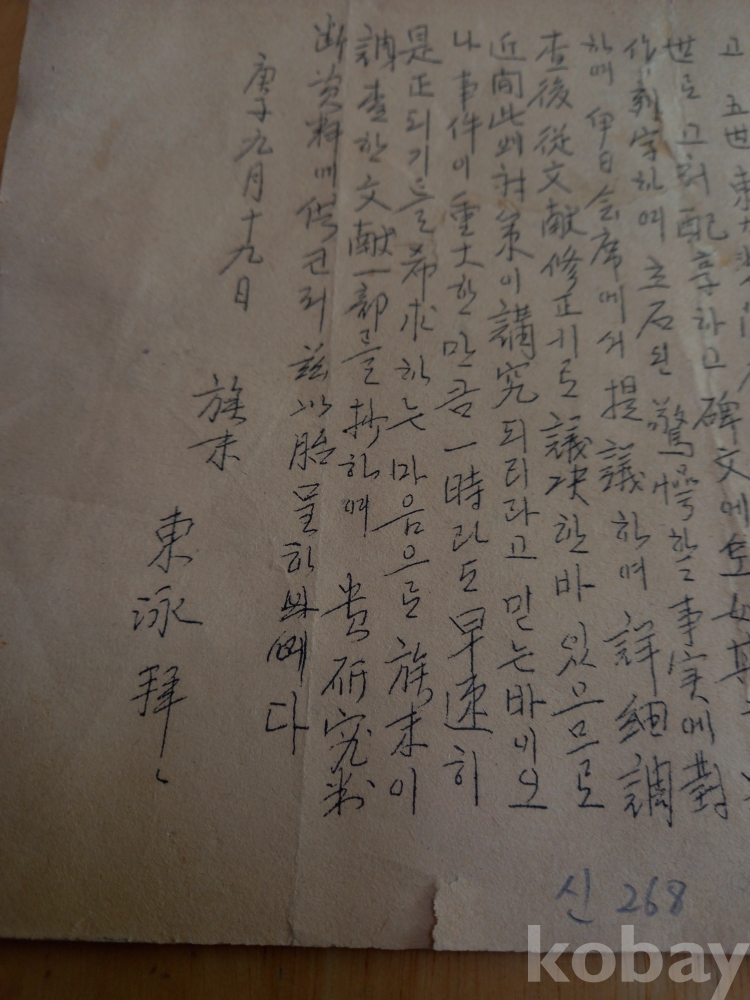 고 五世
世로 고쳐 配享하고 碑文에
作 刻字하여 立石된 驚愕할 事実에 對
하며 伊日 会席에서 提議하여 詳細 調
査後 從文献 修正키로 議決한 바 있으므로
近間此 対策이 講究되리라고 믿는바이오
나 事件이 重大한 만큼 一時라도 早速히
是正되기를 希求하는 마음으로 族末이
調査한 文献 一部를 抄하여 貴研究判
断 資料에 供코저 玆以 하 다
庚子 九月 十九日
族末
東泳 拜
신 268
kobay